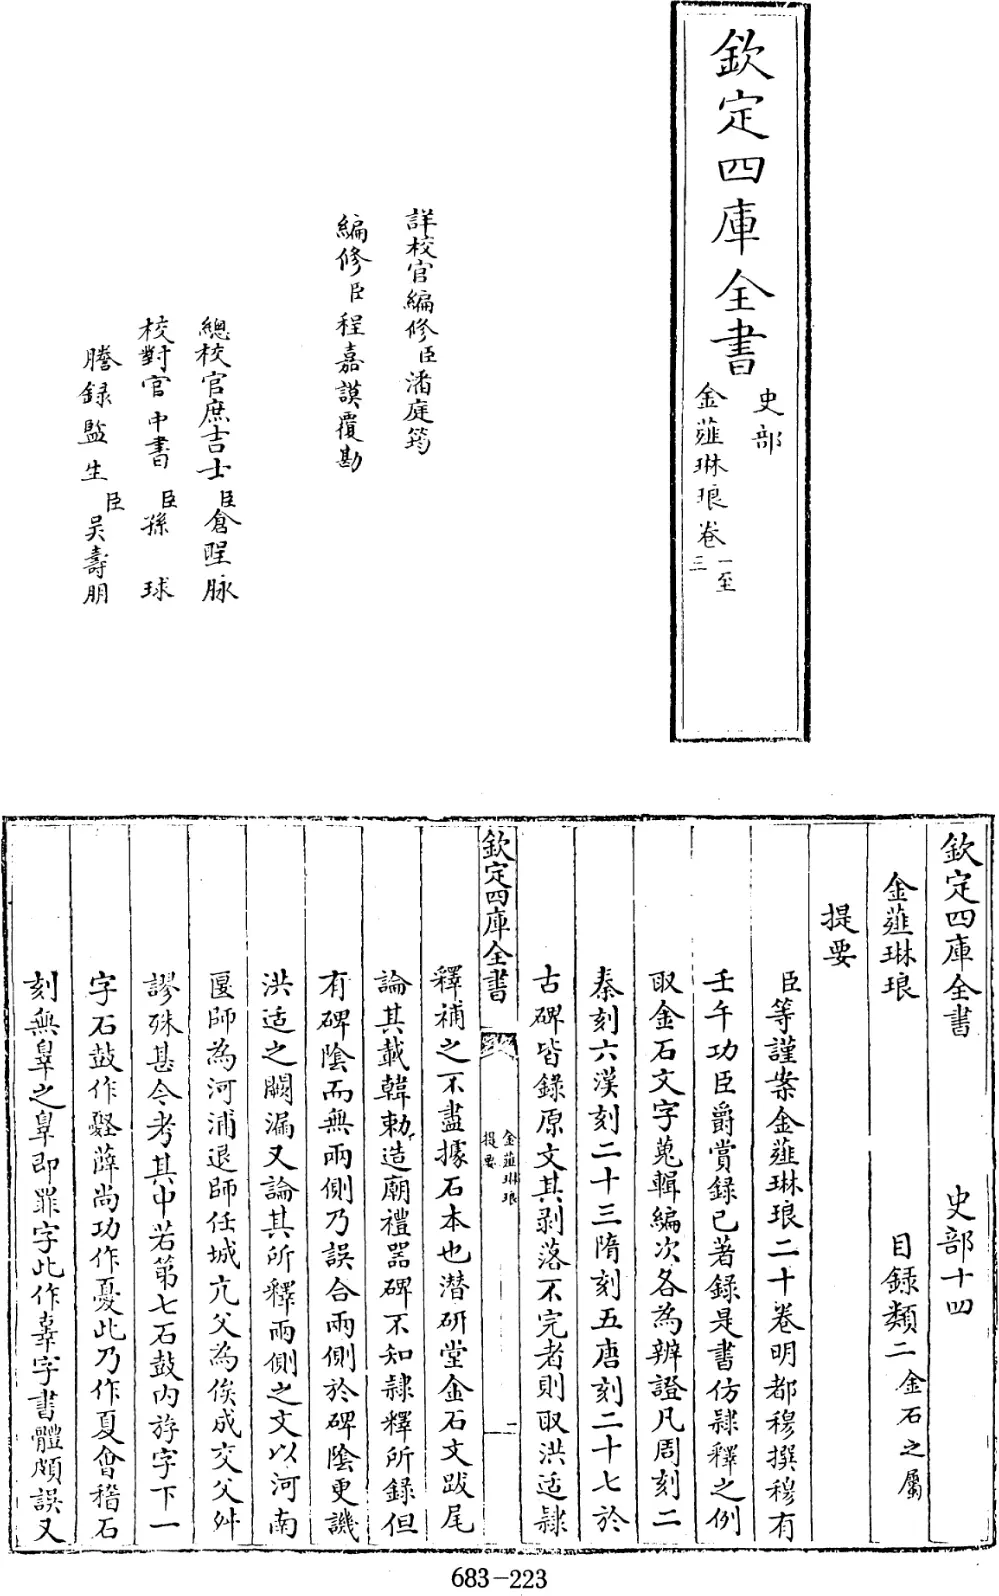 欽定四庫全書
史部
金薤琳琅卷一至三
詳校官編修臣潘庭筠
編修臣程嘉謨覆勘
總校官庶吉士臣倉聖脉
校對官中書臣孫球
謄錄監生臣吴壽朋
欽定四庫全書 史部十四
金薤琳琅 目録類二金石之屬
提要
臣等謹案金薤琳琅二十卷明都穆撰穆有
壬午功臣爵賞録已著録是書仿隸釋之例
取金石文字蒐輯編次各為辨證凡周刻二
秦刻六漢刻二十三隋刻五唐刻二十七於
古碑皆錄原文其剥落不完者則取洪适隸
欽定四庫全書
金薤琳琅
提要
一
釋補之不盡據石本也潜研堂金石文跋尾
論其載韓勅造廟禮器碑不知隸釋所錄但
有碑陰而無兩側乃誤合兩側於碑陰更譏
洪适之闕漏又論其所釋兩側之文以河南
匽師為河浦退師任城亢父為俟成交父舛
謬殊甚今考其中若第七石鼓内斿字下一
字石鼓作𢥠薛尚功作憂此乃作夏會稽石
刻無辠之辠即罪字此作辜字書體頗誤又
683-223